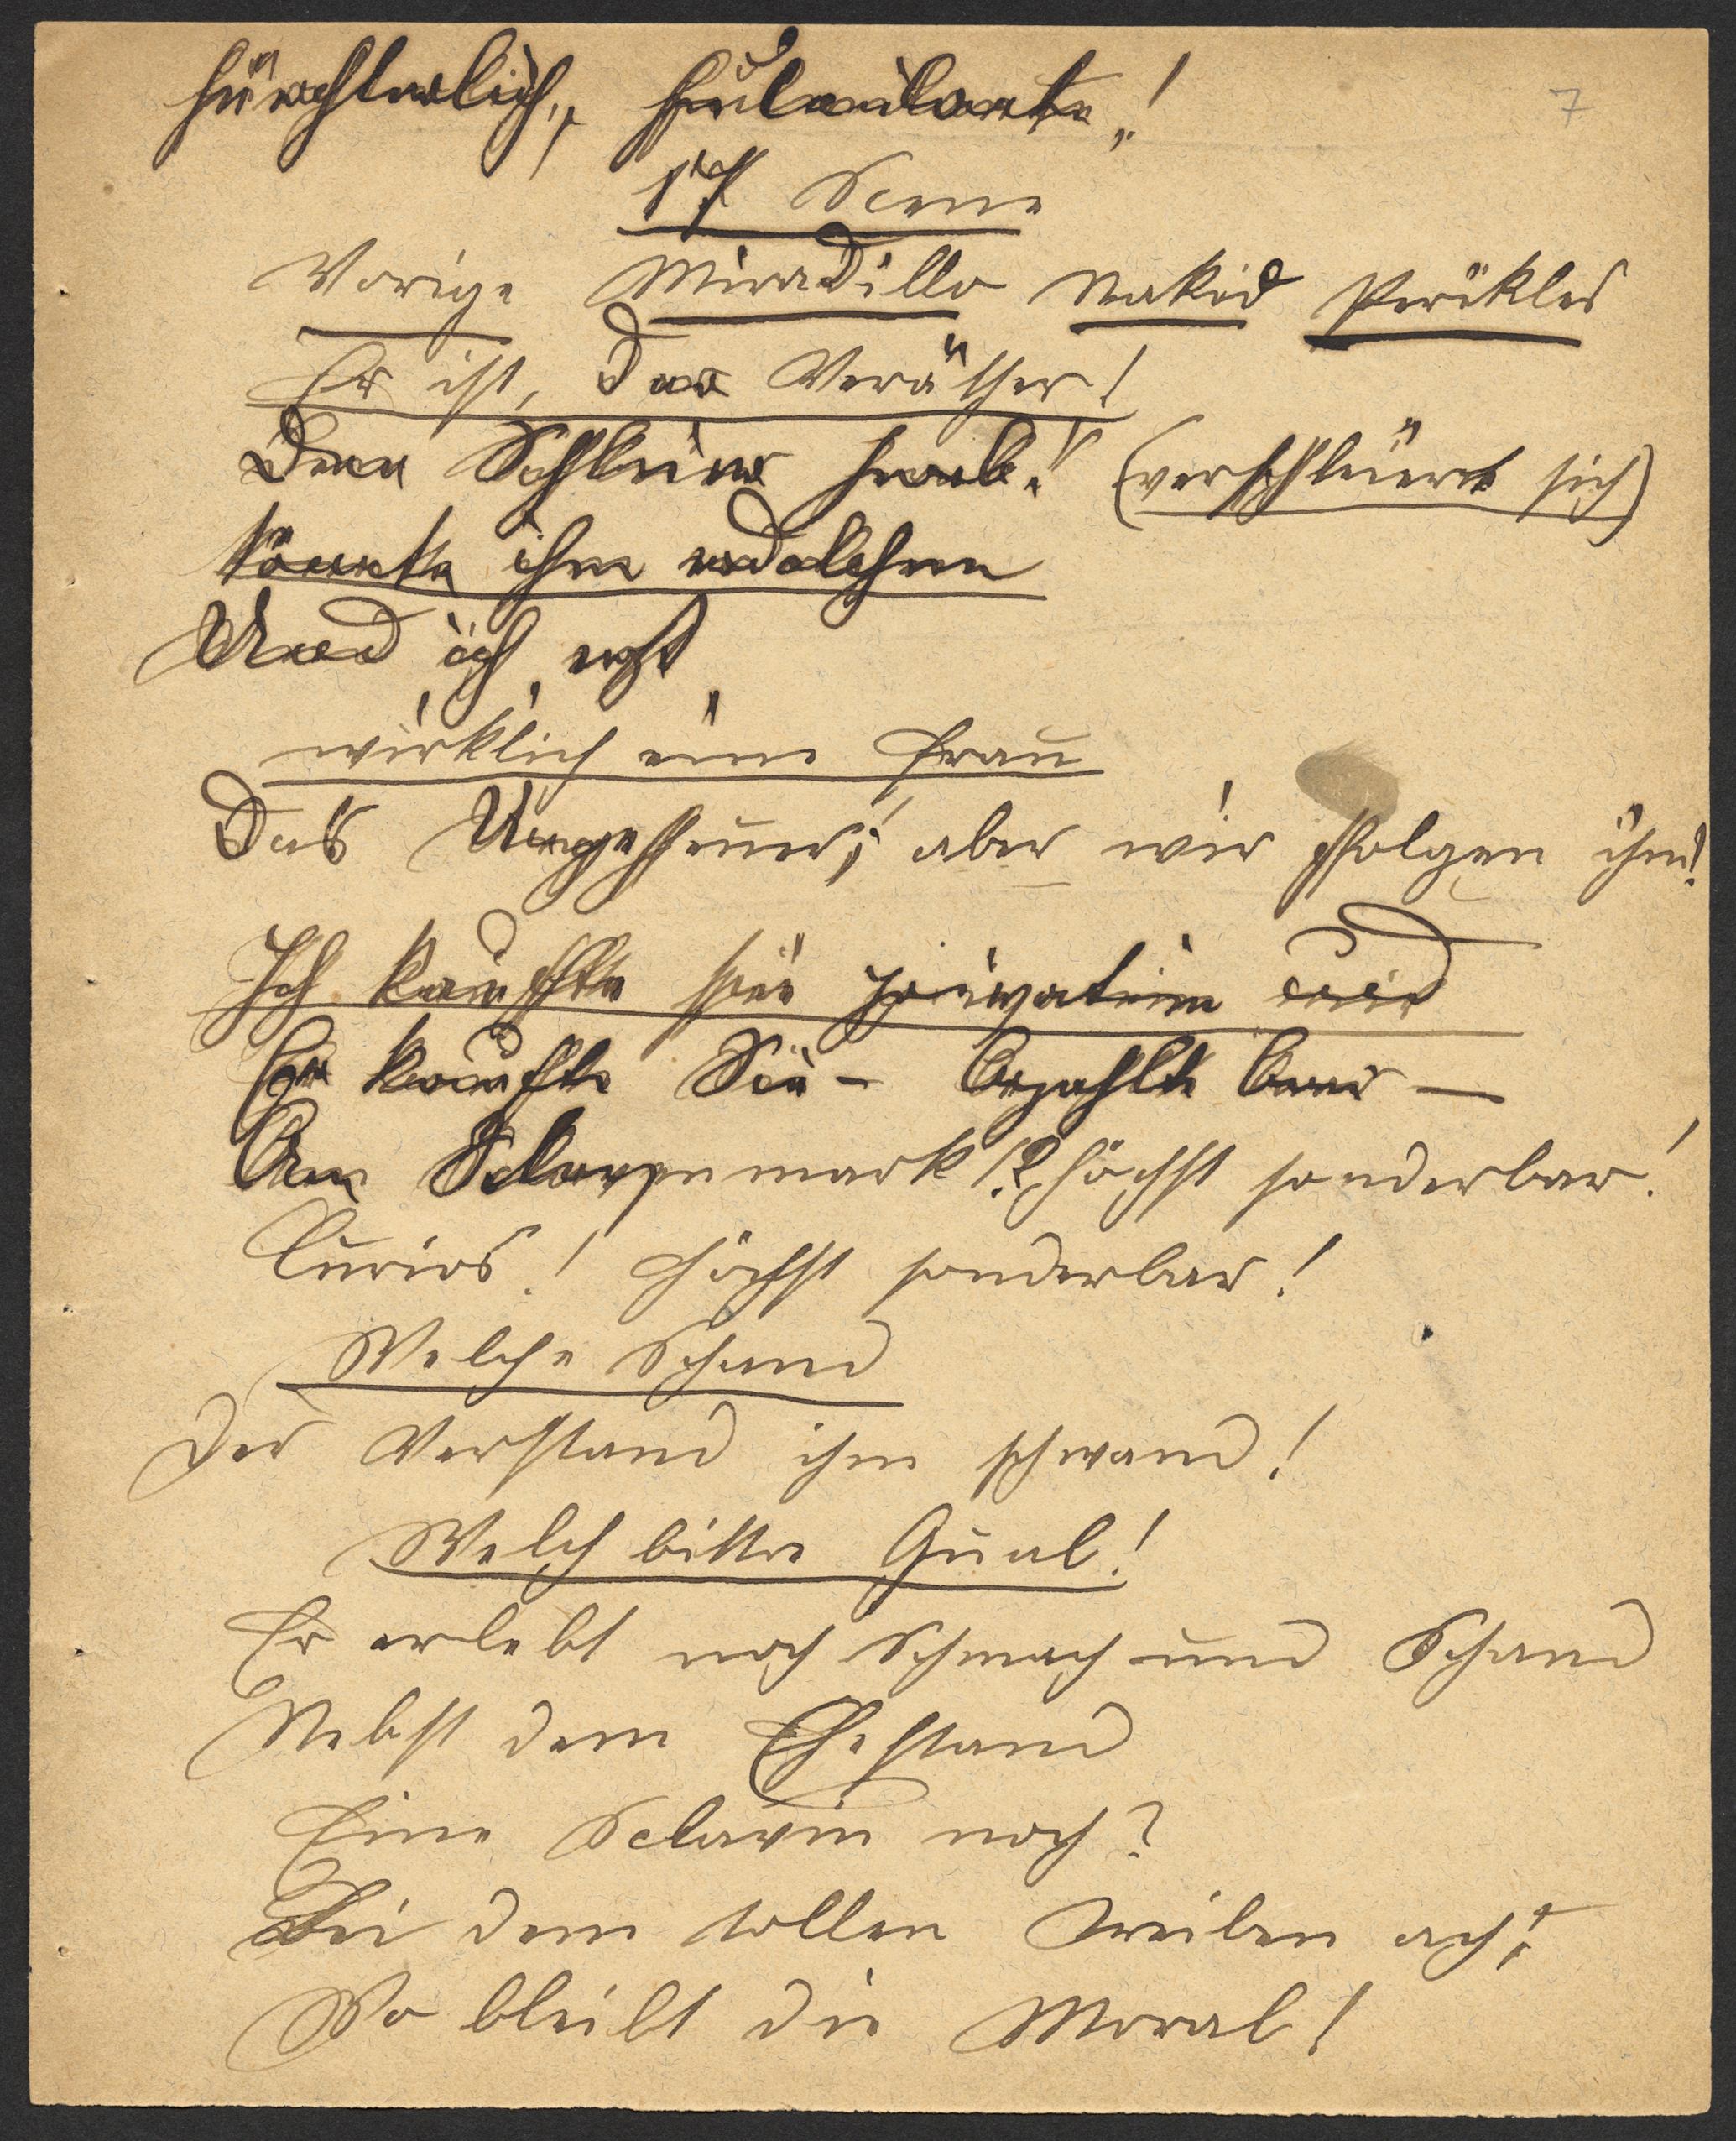 fürchterlich,, fulminante,,!
7
17 Scene
Vorige Miradillo Nakid Perikles
Er ist, der Veräther!
Den Schleier herab! (verschleiert sich)
könnte ihn erdolchen
Und ich erst
wirklich eine Frau
Das Ungeheuer! aber wir folgen ihm!
Ich kaufte sie privatim und
Er kaufte Sie – bezahlte baar –
Am Sclavenmark!? höchst sonderbar!
Curios! höchst sonderbar!
Welche Schand
Der Verstand ihm schwand!
Welch bittre Qual!
Er erlebt noch Schmach und Schand
Nebst dem Ehestand
Eine Sclavin noch?
Bei dem tollen Treiben ach!
Wo bleibt die Moral!